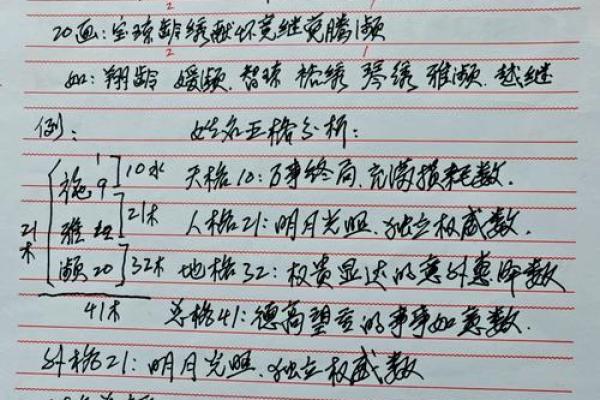 20画:宝琼龄绣献怀竞继觉腾濒
如:翔龄 媛濒.智琼 裕绣 琴绣 雅濒.越继
例: 姓名五格分析:
1
施 9 10水 天格10:万事终局.充满损耗数.
21木 雅 12 21木 人格21:明月光照.独立权威数.
濒 20 32木 地格32:权贵显达的意外惠数
41木 总格41:德高望重的事事如意数.
外格21:明月光照.独立权威数